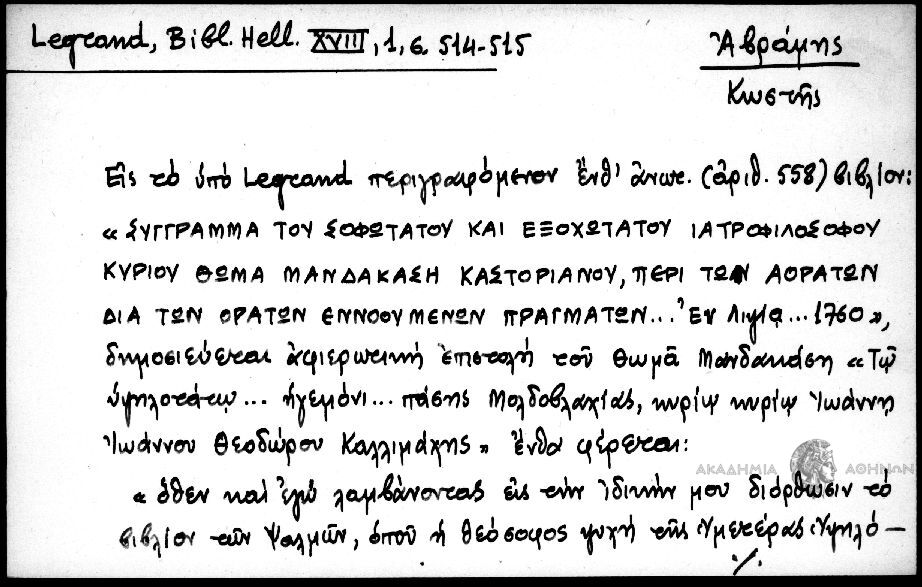 Legrand, Bibl. Hell. XVIII, 1, σ. 514-515
Ἀβράμης
Κωστῆς
Εἰς τὸ ὑπὸ Legrand περιγραφόμενον ἔνθ' ἀνωτ. (ἀριθ. 558) βιβλίον:
« ΣΥΓΓΡΑΜΜΑ ΤΟΥ ΣΟΦΩΤΑΤΟΥ ΚΑΙ ΕΞΟΧΩΤΑΤΟΥ ΙΑΤΡΟΦΙΛΟΣΟΦΟΥ
ΚΥΡΙΟΥ ΘΩΜΑ ΜΑΝΔΑΚΑΣΗ ΚΑΣΤΟΡΙΑΝΟΥ, ΠΕΡΙ ΤΩΝ ΑΟΡΑΤΩΝ
ΔΙΑ ΤΩΝ ΟΡΑΤΩΝ ΕΝΝΟΟΥΜΕΝΩΝ ΠΡΑΓΜΑΤΩΝ... Ἐν Λιψίᾳ ... 1760 »,
δημοσιεύεται ἀφιερωτικὴ ἐπιστολὴ τοῦ Θωμᾶ Μανδακάση « Τῷ
ὑψηλοτάτῳ ... ἡγεμόνι ... πάσης Μολδοβλαχίας, κυρίῳ κυρίῳ Ἰωάννῃ
Ἰωάννου Θεοδώρου Καλλιμάχης » ἔνθα φέρεται:
ΑΚΑΔΗΜΙΑ ΑΘΗΝΩΝ
« ὅθεν καὶ ἐγὼ λαμβάνοντας εἰς τὴν ἰδικήν μου διόρθωσιν τὸ
βιβλίον τῶν Ψαλμῶν, ὁποῦ ἡ θεόσοφος ψυχὴ τῆς Ὑμετέρας Ὑψηλό-
./.